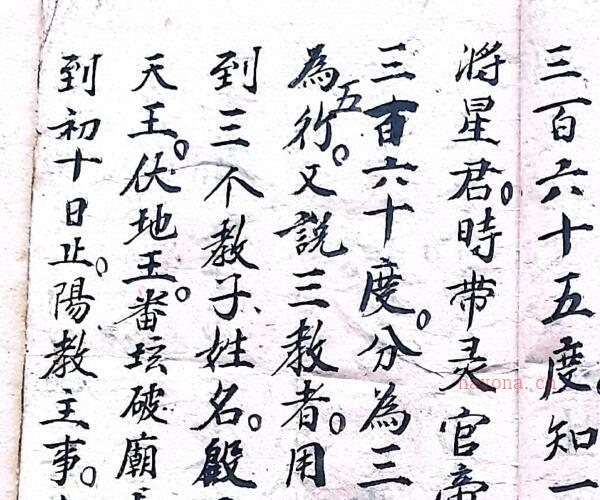 三百六十五度。知一
將星君。時带灵官帝
三百六十五度。分為三
為行。又説三教者。用
到三个教子姓名。殷
天王。伏地王。番坛破廟
到初十日止。陽教主事。
nayona.cn